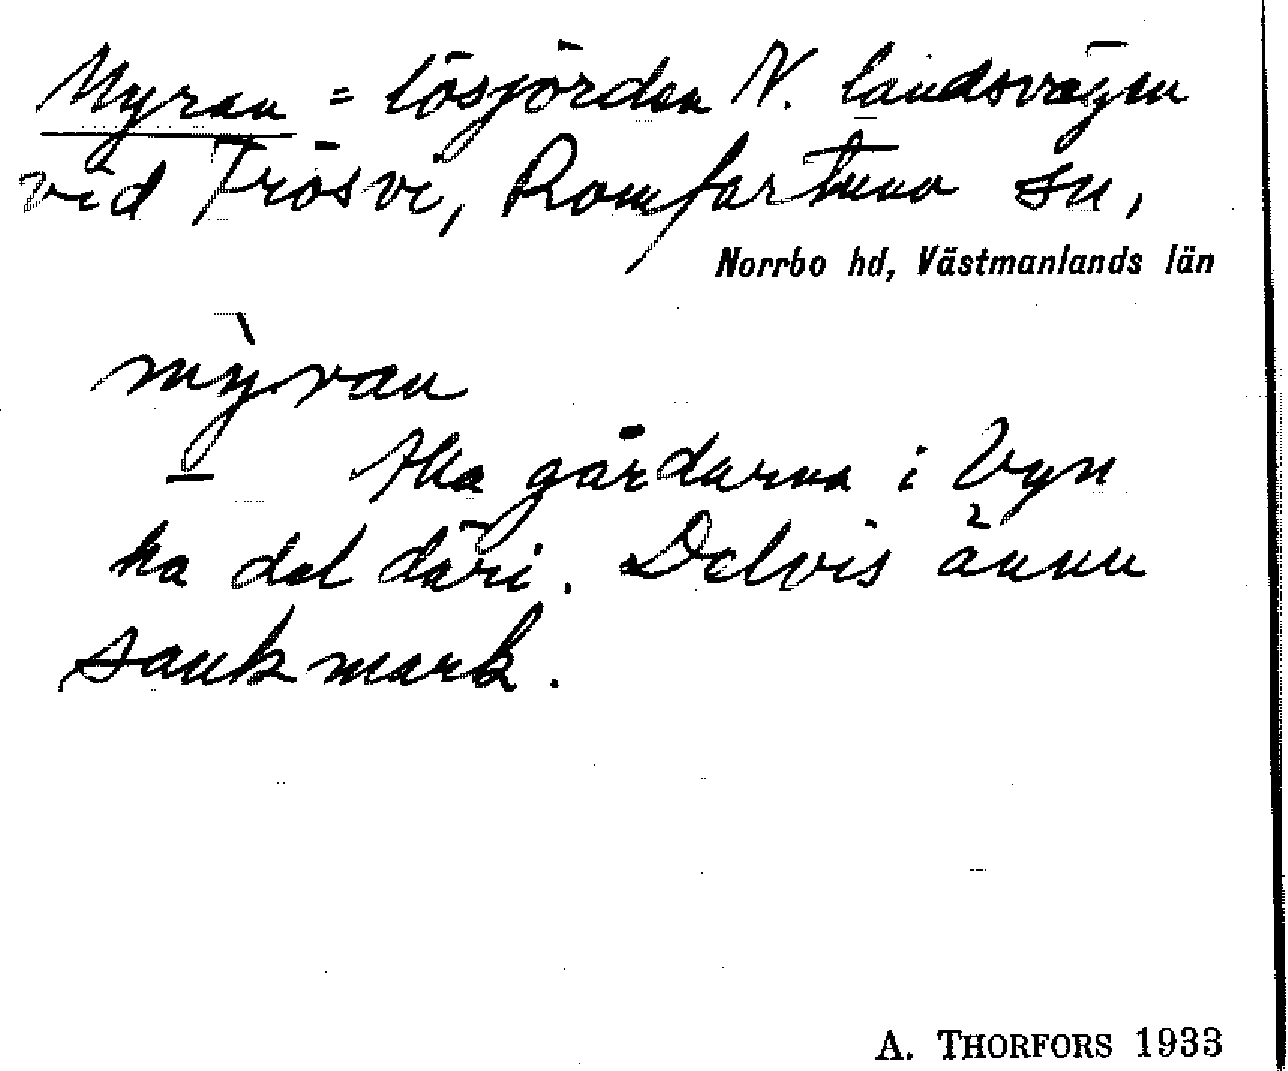 Myran = lösjorden N. landsvägen
vid Frösvi, Romfartuna sn,
Norrbo hd, Västmanlands län
mỳran
Alla gårdarna i byn
ha del däri. Delvis ännu
sankmark.
A. THORFORS 1933